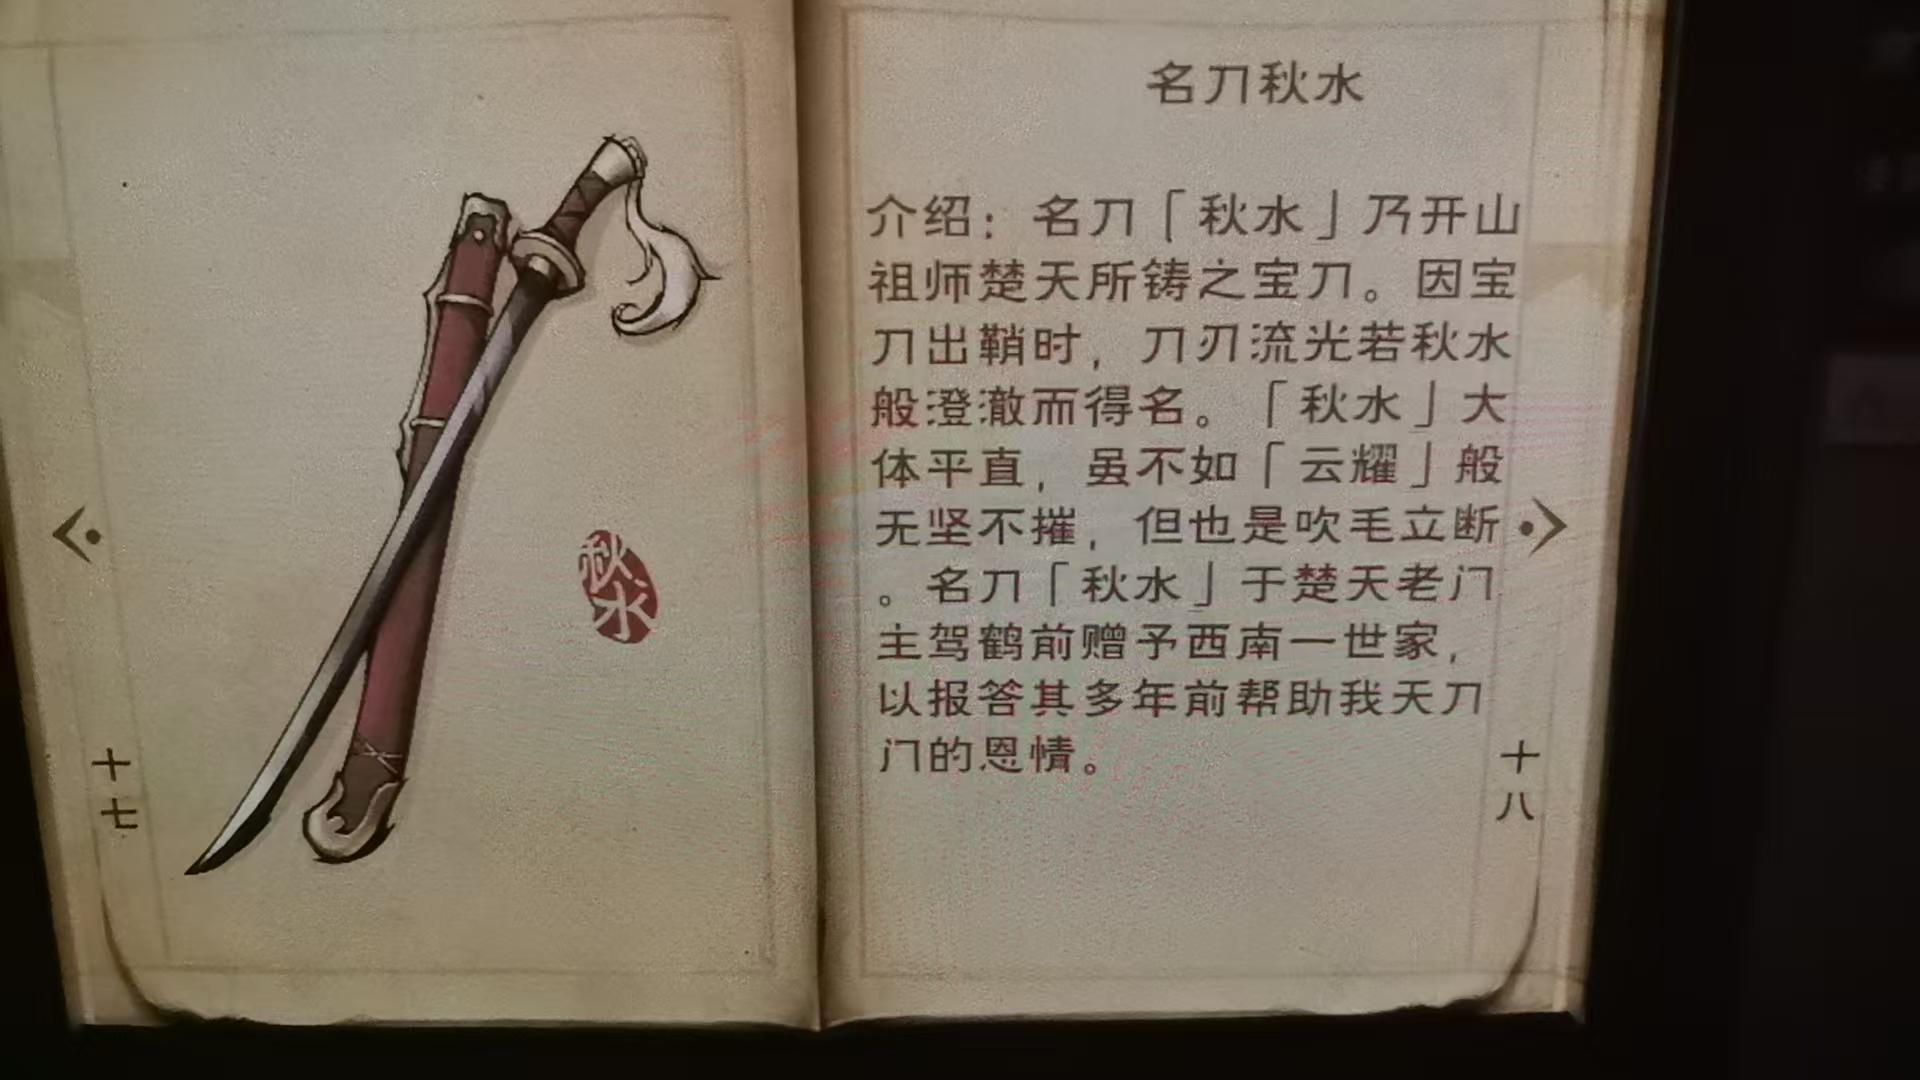 秋水
十七
名刀秋水
介绍：名刀「秋水」乃开山
祖师楚天所铸之宝刀。因宝
刀出鞘时，刀刃流光若秋水
般澄澈而得名。「秋水」大
体平直，虽不如「云耀」般
无坚不摧，但也是吹毛立断
。名刀「秋水」于楚天老门
主驾鹤前赠予西南一世家，
以报答其多年前帮助我天刀
门的恩情。
十八